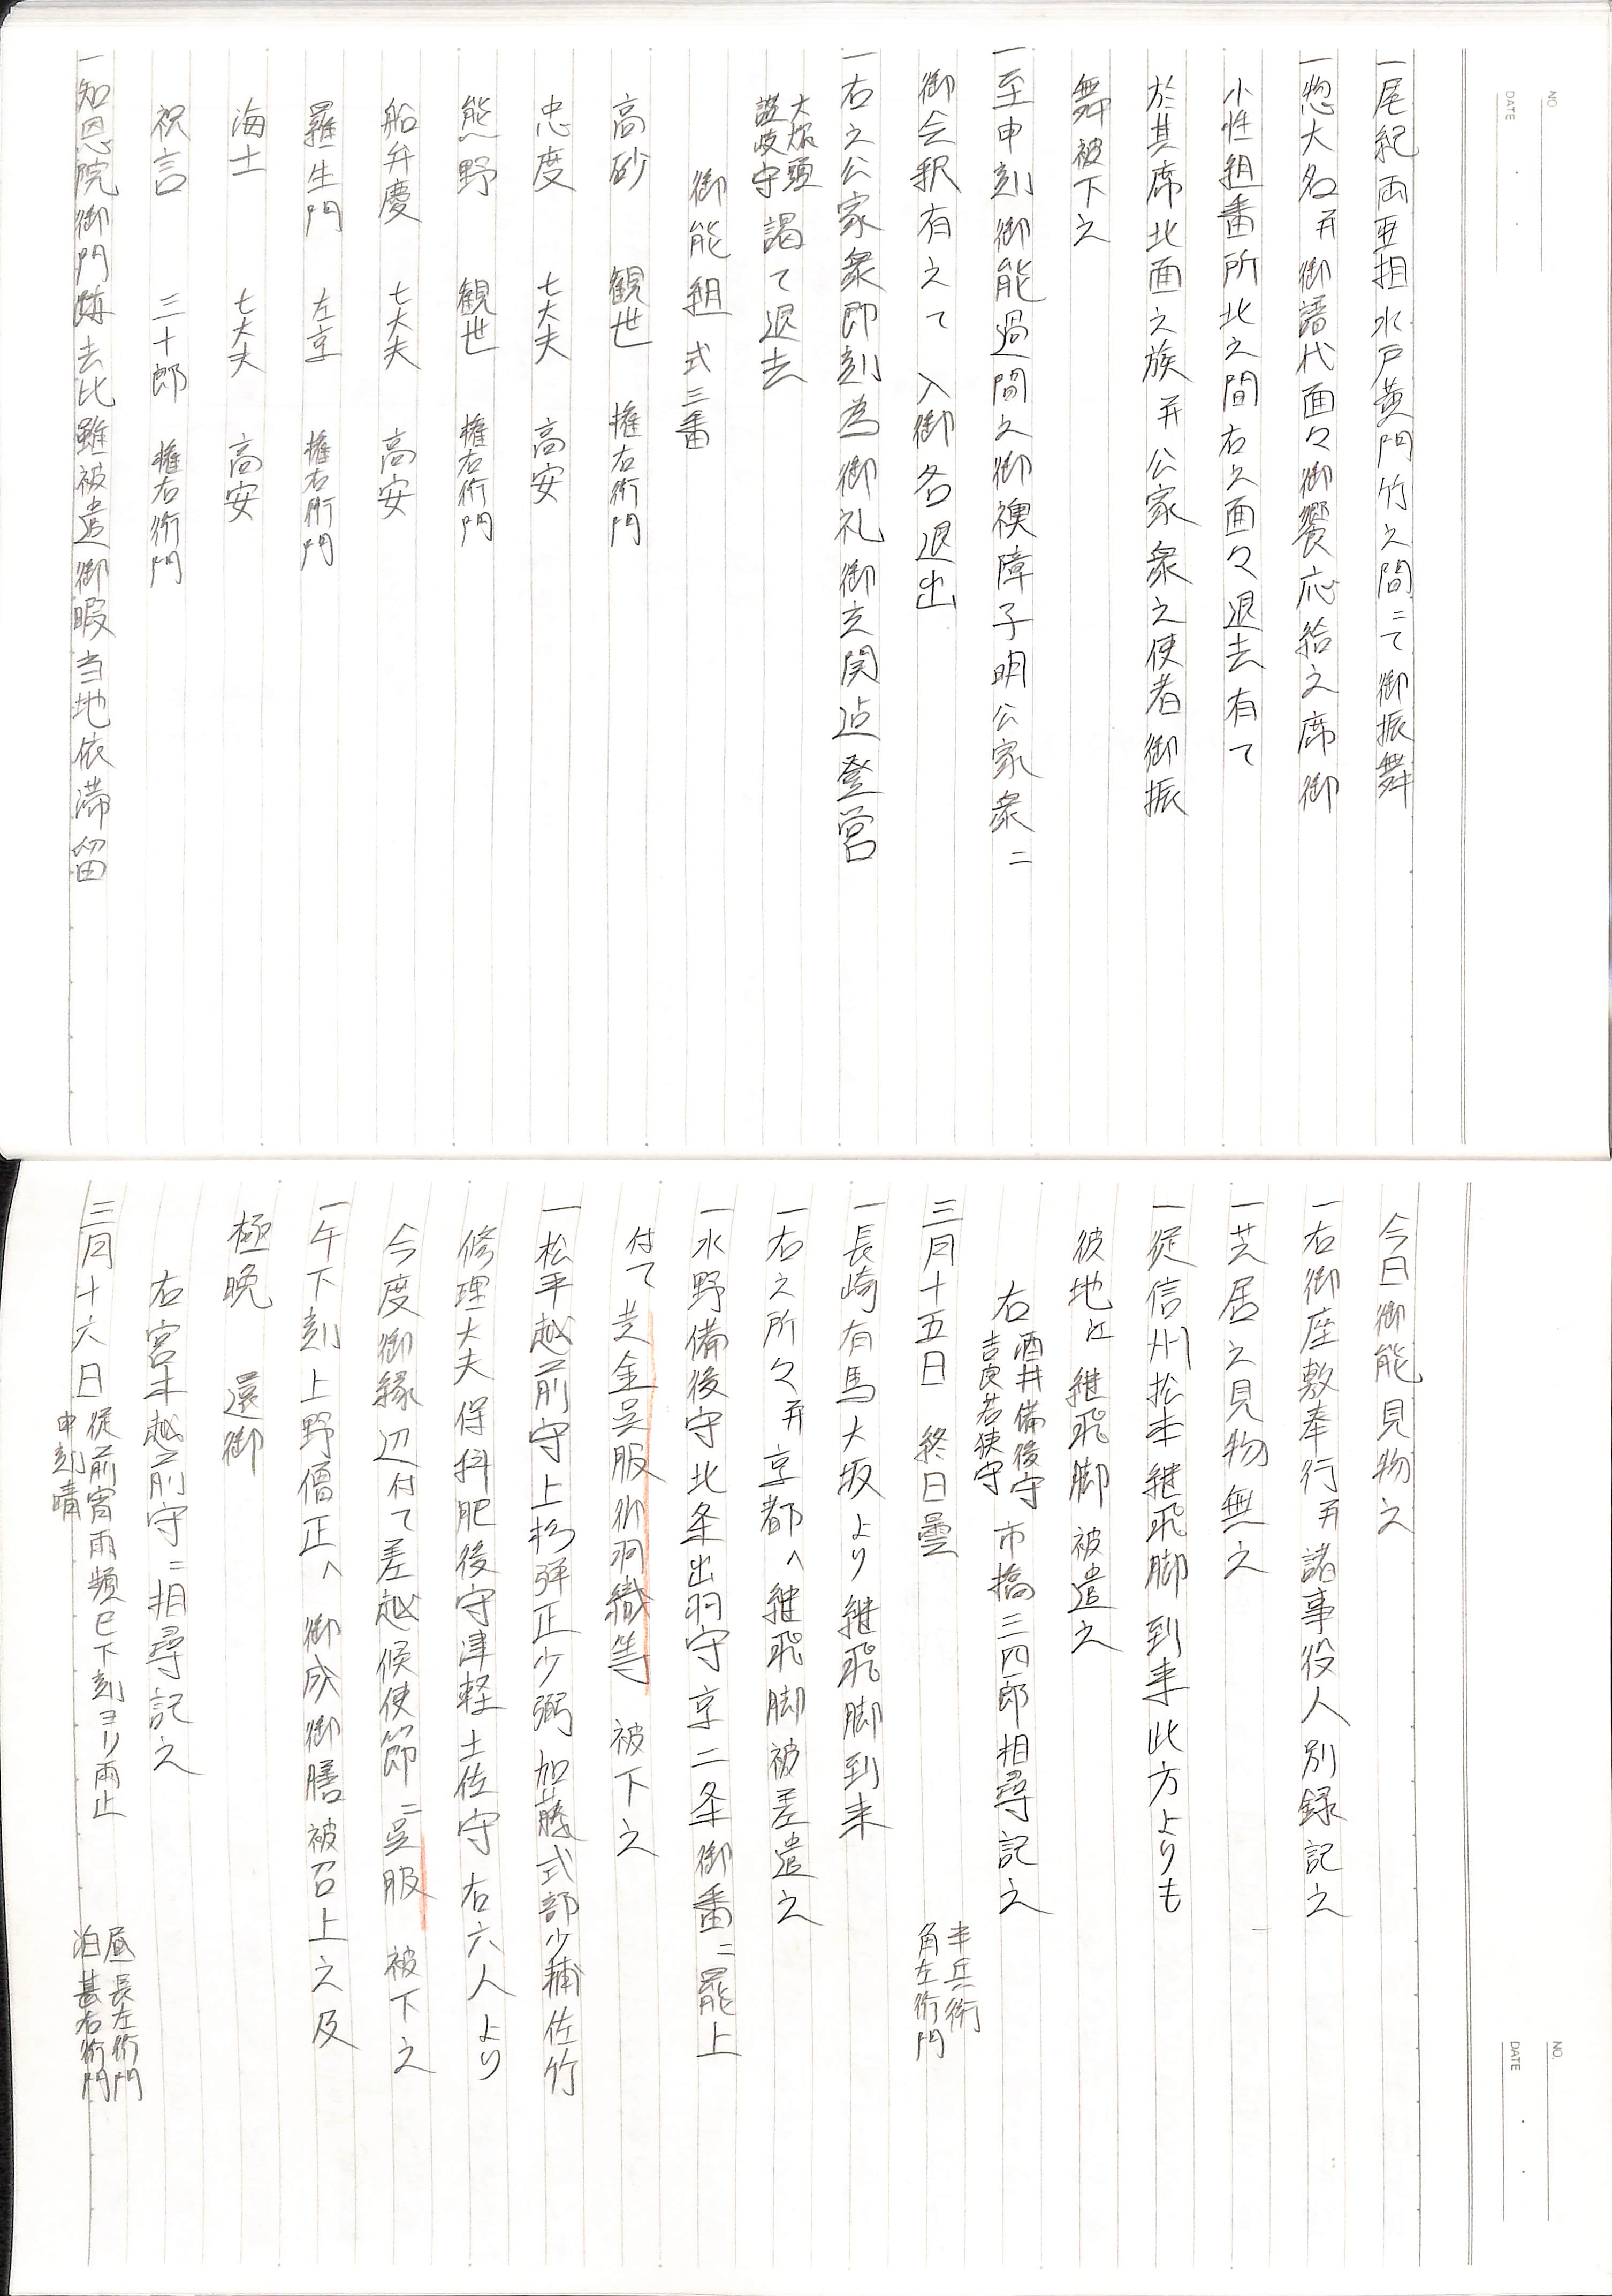 NO.
DATE
一尾紀両亜相水戸黄門竹之間ニて御振舞
一惣大名并御譜代面々御饗応給之席御
小性組番所北之間右之面々退去有て
於其席北面之族并公家衆之使者御振
舞被下之
一至申刻御能過間之御襖障子明公家衆ニ
御会釈有之て 入御各退出
一右之公家衆即刻為御礼御玄関迄登営
大炊頭
讃岐守 謁て退去
御能組 式三番
高砂 観世 権右衛門
忠度 七大夫 高安
熊野 観世 権右衛門
船弁慶 七大夫 高安
羅生門 左京 権右衛門
海士 七大夫 高安
祝言 三十郎 権右衛門
一知恩院御門跡去比雖被遣御暇当地依滞留
NO.
DATE
今日御能見物之
一右御座敷奉行并諸事役人別録記之
一芝居之見物無之
一従信州松本継飛脚到来此方よりも
彼地江継飛脚被遣之
右 酒井備後守
吉良若狭守 市橋三四郎相尋記之
三月十五日 終日曇 半兵衛
角左衛門
一長崎有馬大坂より継飛脚到来
一右之所々并京都へ継飛脚被差遣之
一水野備後守北条出羽守京二条御番ニ罷上
付て 黄金呉服御羽織等 被下之
一松平越前守上杉弾正少弼加藤式部少輔佐竹
修理大夫保科肥後守津軽土佐守右六人より
今度御縁辺付て差越候使節ニ呉服 被下之
一午下刻上野僧正へ 御成御膳被召上之及
極晩 還御
右宮本越前守ニ相尋記之
三月十六日 従前宵雨頻巳下刻ヨリ雨止
申刻晴 昼 長左衛門
泊 甚右衛門